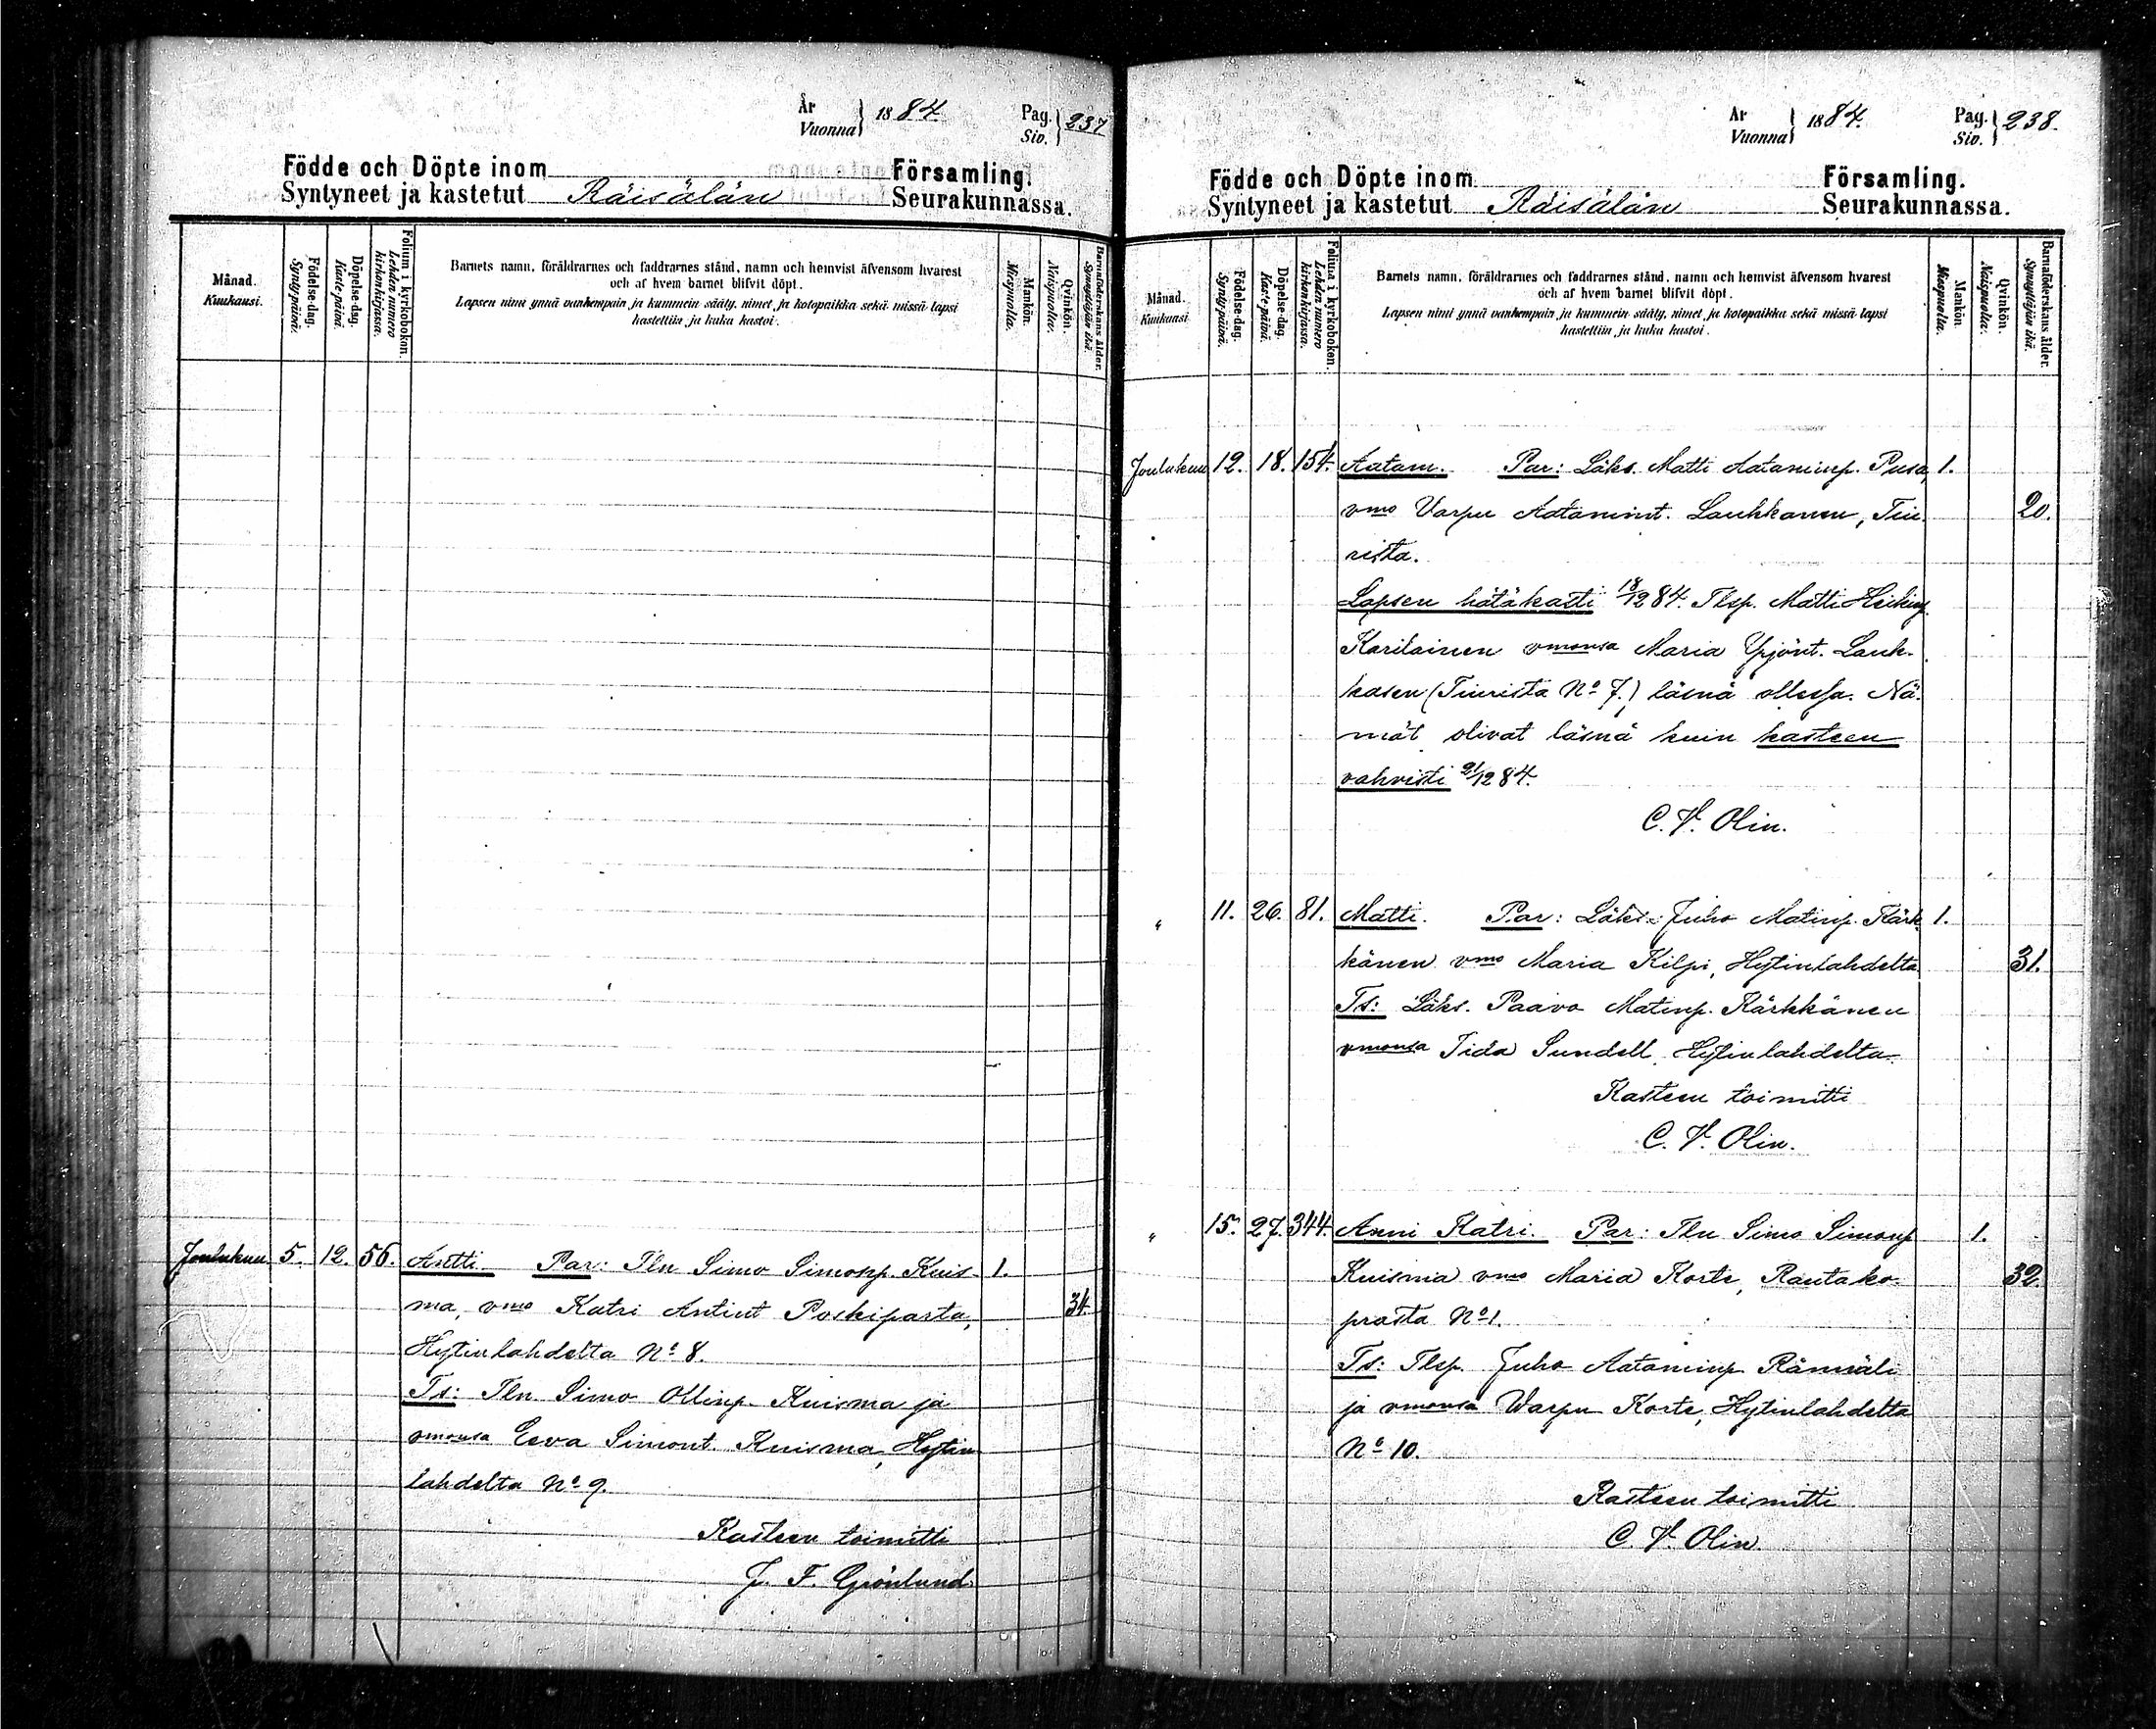 År
Vuonna } 1884. Pag.
Siv. } 237
Födde och Döpte inom Församling.
Syntyneet ja kastetut Räisälän Seurakunnassa.
Månad.
Kuukausi.
Födelse-dag.
Syntypäivä.
Döpelse-dag.
Kaste-päivä.
Folium i kyrkoboken.
Lehden numero
kirkonkirjassa.
Barnets namn, föräldrarnes och faddrarnes stånd, namn och hemvist äfvensom hvarest
och af hvem barnet blifvit döpt.
Lapsen nimi ynnä vanhempain ja kummein sääty, nimet, ja kotopaikka sekä missä lapsi
kastettiin ja kuka kastoi.
Mankön.
Miespuolia.
Qvinkön.
Naispuolia.
Barnaföderskans ålder.
Synnyttäjän ikä.
Joulukuu 5. 12. 56. Antti. Par: Tln Simo Simonp. Kuis- 1.
ma, vmo Katri Antint Poskiparta, 34.
Hytinlahdelta No 8.
Ts: Tln Simo Ollinp. Kuisma ja
vmonsa Eeva Simont. Kuisma, Hytin
lahdelta No 9.
Kasteen toimitti
J. F. Grönlund.
År
Vuonna } 1884. Pag.
Siv. } 238.
Födde och Döpte inom Församling.
Syntyneet ja kastetut Räisälän Seurakunnassa.
Månad.
Kuukausi
Födelse-dag.
Syntypäivä.
Döpelse-dag.
Kaste-päivä.
Folium i kyrkoboken.
Lehden numero
kirkonkirjassa.
Barnets namn, föräldrarnes och faddrarnes stånd, namn och hemvist äfvensom hvarest
och af hvem barnet blifvit döpt.
Lapsen nimi ynnä vanhempain ja kummein sääty, nimet, ja kotopaikka sekä missä lapsi
kastettiin ja kuka kastoi.
Mankön.
Miespuolia.
Qvinkön.
Naispuolia.
Barnaföderskans ålder.
Synnyttäjän ikä.
Joulukuu 12. 18. 154. Aatam. Par: Läks. Matti Aataminp. Pusa, 1.
vmo Varpu Aatamint. Laukkanen, Tiu- 20.
rista.
Lapsen hätäkasti 18/12 84. Tlsp. Matti Heikinp.
Karilainen vmonsa Maria Yrjönt. Lauk-
kasen (Tiurista No 7.) läsnä ollessa. Nä-
mät olivat läsnä kuin kasteen
vahvisti 21/12 84.
C. V. Olin.
" 11. 26. 81. Matti. Par: Läks. Juho Matinp. Kärk- 1.
känen vmo Maria Kilpi, Hytinlahdelta 31.
Ts: Läks. Paavo Matinp. Kärkkänen
vmonsa Iida Sundell, Hytinlahdelta.
Kasteen toimitti
C. V. Olin.
" 15. 27. 344. Anni Katri. Par: Tln Simo Simonp 1.
Kuisma vmo Maria Korte, Rautako- 32.
prasta No 1.
Ts: Tlsp. Juho Aataminp Rämiäli
ja vmonsa Warpu Korte, Hytinlahdelta
No 10.
Kasteen toimitti
C. V. Olin.